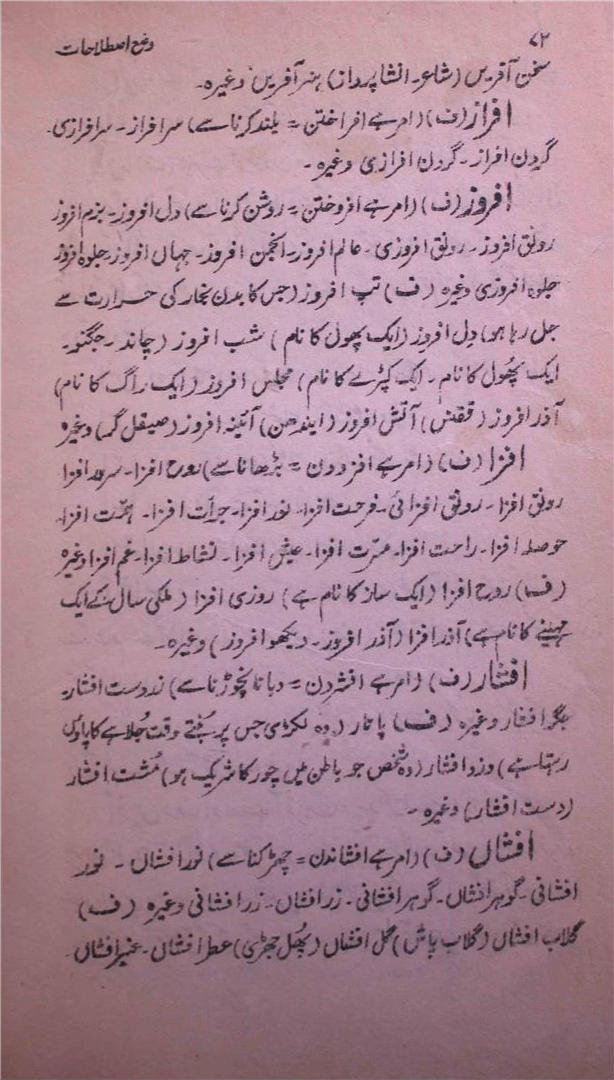 ۷۲
وضع اصطلاحات
سخن آفریں (شاعر۔ انشا پرداز) ہنر آفریں وغیرہ۔
افراز (ف) (امر ہے افراختن = بلند کرنا سے) سرافراز۔ سرافرازی۔
گردن افراز۔ گردن افرازی وغیرہ۔
افروز (ف) (امر ہے افروختن = روشن کرنا سے) دل افروز۔ بزم افروز
رونق افروز۔ رونق افروزی۔ عالم افروز۔ انجمن افروز۔ جہاں افروز۔ جلوہ افروز
جلوہ افروزی وغیرہ (ف) تپ افروز (جس کا بدن بخار کی حرارت سے
جل رہا ہو) دل افروز (ایک پھول کا نام) شب افروز (چاند۔ جگنو۔
ایک پھُول کا نام۔ ایک کپڑے کا نام) مجلس افروز (ایک راگ کا نام)
آذر افروز (ققنس) آتش افروز (ایندھن) آئینہ افروز (صیقل گر) وغیرہ
افزا (ف) (امر ہے افزودن = بڑھانا سے) روح افزا۔ سرور افزا
رونق افزا۔ رونق افزائی۔ فرحت افزا۔ نور افزا۔ جرأت افزا۔ ہمّت افزا۔
حوصلہ افزا۔ راحت افزا۔ مسّرت افزا۔ عیش افزا۔ نشاط افزا۔ غم افزا وغیرہ
(ف) روح افزا (ایک ساز کا نام ہے) روزی افزا (ملکی سال کے ایک
مہینے کا نام ہے) آذر افزا (آذر افروز۔ دیکھو افروز) وغیرہ۔
افشار (ف) (امر ہے افشردن = دبانا نچوڑنا سے) زدست افشار۔
جگر افشار وغیرہ (ف) پا افشار (وہ لکڑی جس پر بُنتے وقت جُلاہے کا پاؤں
رہتا ہے) دزد افشار (وہ شخص جو باطن میں چور کا شریک ہو) مُشت افشار
(دست افشار) وغیرہ۔
افشاں (ف) (امر ہے افشاندن = چھڑکنا سے) نور افشاں۔ نور
افشانی۔ گوہر افشاں۔ گوہر افشانی۔ زر افشاں۔ زر افشانی وغیرہ (ف)
گلاب افشاں (گلاب پاش) گل افشاں (پُھل جھڑی) عطر افشاں۔ عنبر افشاں۔